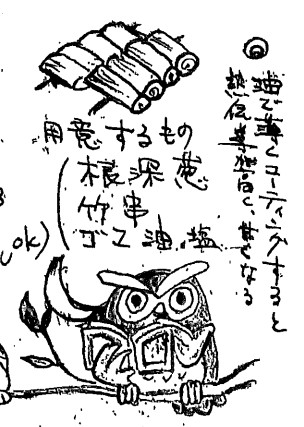 油で薄くコーティングすると
熱伝導率高く、甘くなる
用意するもの
根深葱
竹串
ゴマ油、塩
ok)